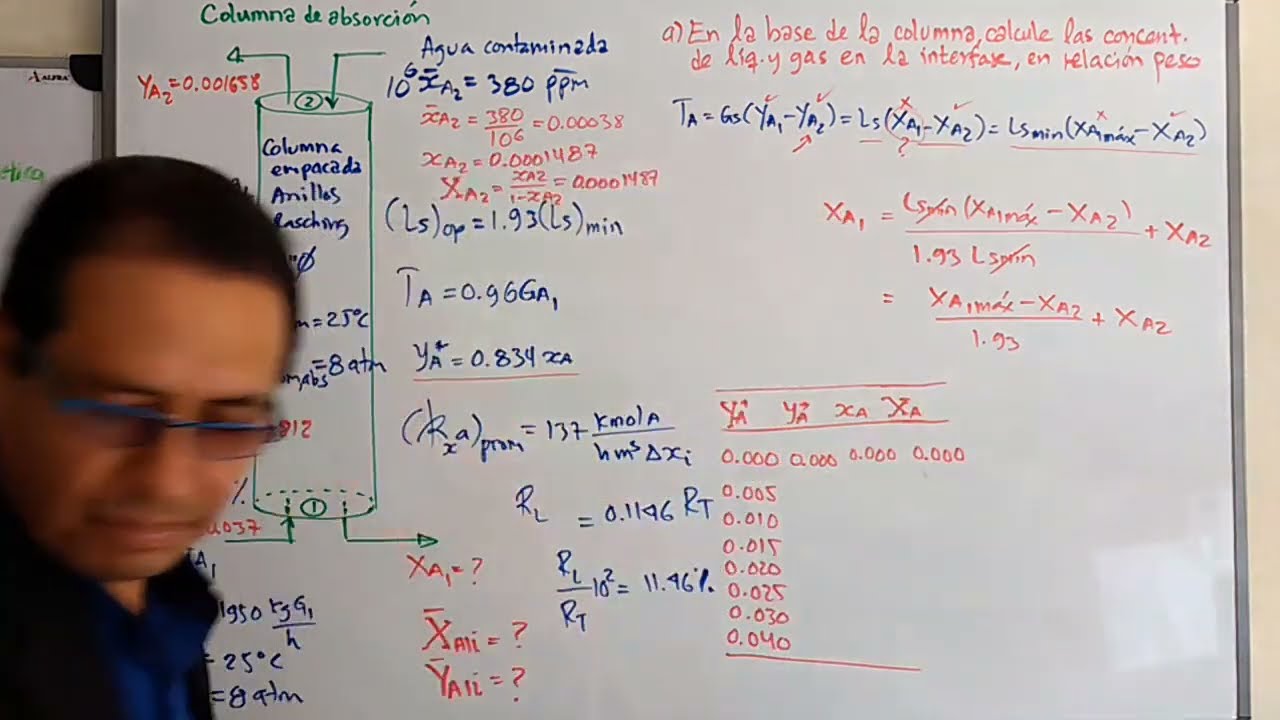 Columna de absorción
ALFRA
Y_A2 = 0.001658
②
Columna
empacada
Anillos
Rasching
"ø
= 25°C
= 8 atm
abs
812
%
①
.037
1950 kgG₁/h
= 25°C
= 8 atm
Agua contaminada
10⁶ x̄_A2 = 380 pp̄m
x̄_A2 = 380/10⁶ = 0.00038
x_A2 = 0.0001487
X_A2 = x_A2/(1-x_A2) = 0.0001487
(Ls)op = 1.93(Ls)min
T_A = 0.96G_A1
y_A* = 0.834 x_A
(k_x a)prom = 137 kmolA/(hm³Δx_i)
R_L = 0.1146 R_T
R_L/R_T 10² = 11.46%
X_A1 = ?
X̄_A1i = ?
Ȳ_A1i = ?
a) En la base de la columna, calcule las concent.
de líq. y gas en la interfase, en relación peso
T_A = Gs(Y_A1 - Y_A2) = Ls(X_A1 - X_A2) = Lsmin(X_A1máx - X_A2)
?
X_A1 = Lsmín(X_A1máx - X_A2)/(1.93 Lsmín) + X_A2
= (X_A1máx - X_A2)/1.93 + X_A2
Y_A* y_A* x_A X_A
0.000 0.000 0.000 0.000
0.005
0.010
0.015
0.020
0.025
0.030
0.040